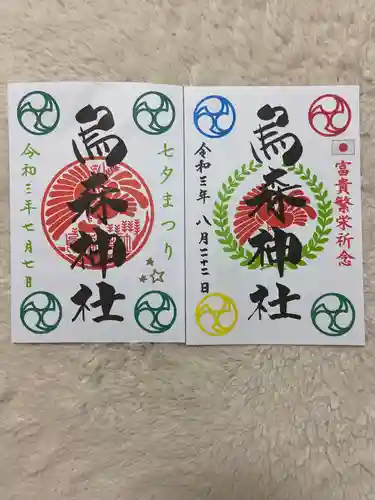 七夕まつり
烏森神社
令和三年七月七日
富貴繁栄祈念
烏森神社
令和三年 八月二十二日